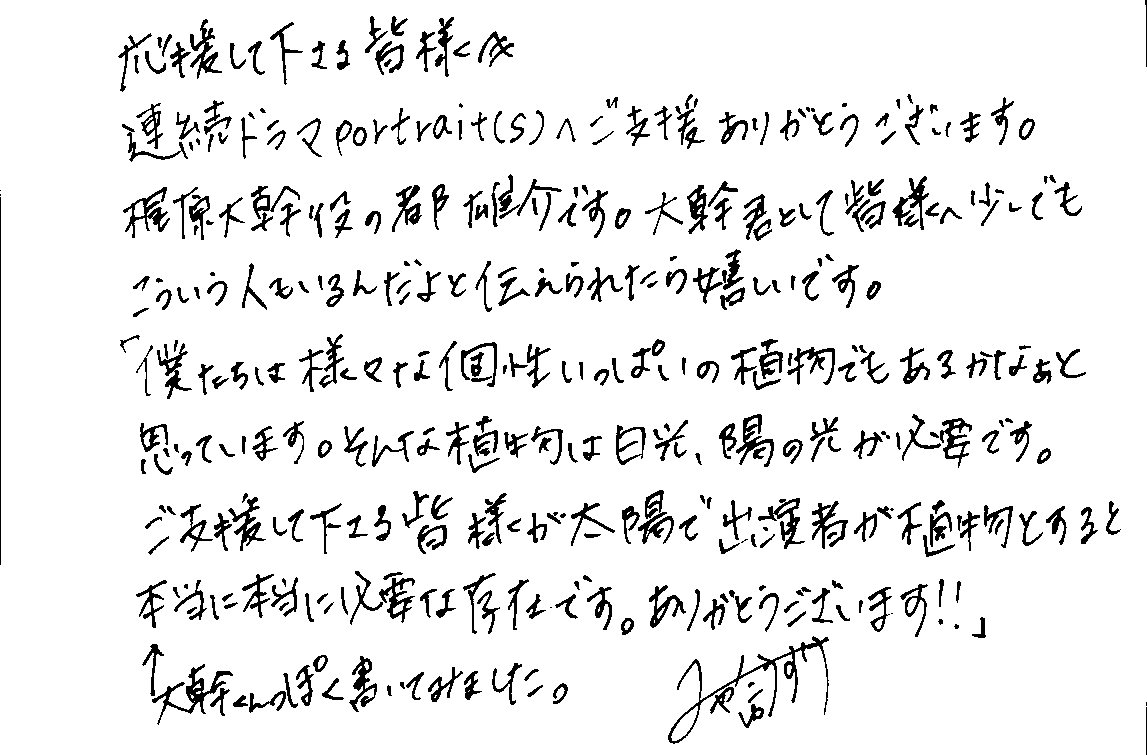 応援して下さる皆様へ
連続ドラマportrait(s)へご支援ありがとうございます。
梶原大幹役の都 雄介です。大幹君として皆様へ少しでも
こういう人もいるんだよと伝えられたら嬉しいです。
「僕たちは様々な個性いっぱいの植物でもあるかなぁと
思っています。そんな植物は日光、陽の光が必要です。
ご支援して下さる皆様が太陽で出演者が植物とすると
本当に本当に必要な存在です。ありがとうございます!!」
↑大幹くんっぽく書いてみました。